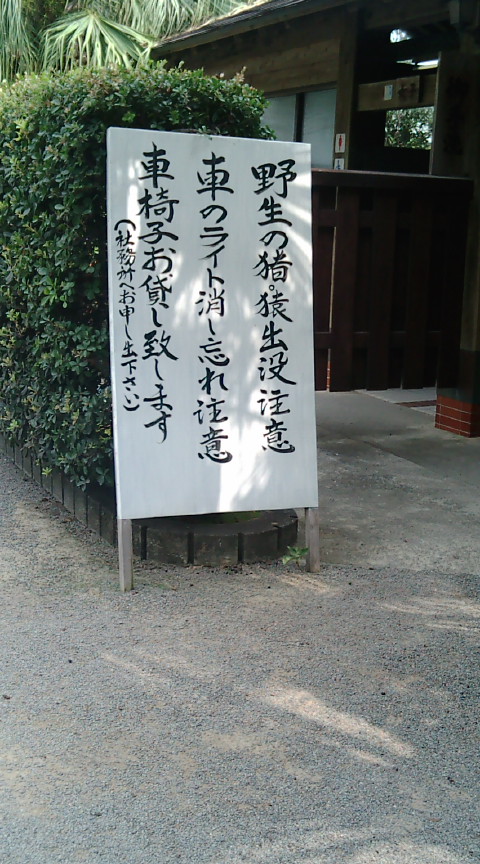 野生の猪。猿出没注意
車のライト消し忘れ注意
車椅子お貸し致します
(社務所へお申し出下さい)